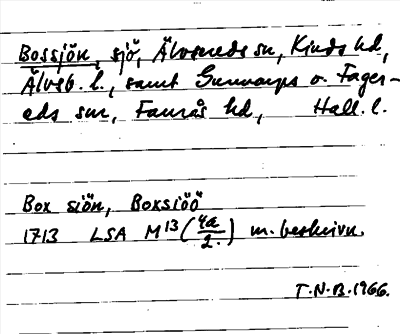 Bossjön, sjö, Älvsereds sn, Kinds hd,
Älvsb. l., samt Gunnarps o. Fager-
eds snr, Faurås hd, Hall. l.
Box siön, Boxsiöö
1713 LSA M13 (4a/2.) m. beskrivn.
T.N.B. 1966.